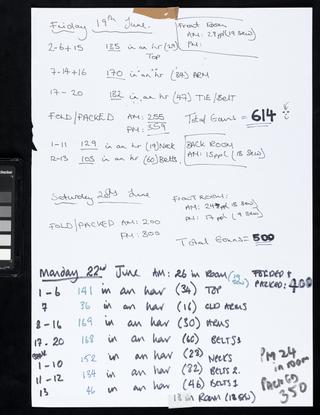 Friday 19th June.
Front Room
AM: 28ppl (19 Sew)
PM:
2-6+15 135 in an hr (29) TOP
7-14+16 170 in an hr (34) ARM
17-20 182 in an hr (47) TIE/BELT
FOLD/PACKED AM: 255
PM: 359
Total Gowns = 614
1-11 129 in an hr (19) Neck
12-13 103 in an hr (60) Belts.
BACK ROOM
AM: 15ppl (13 Sew)
Saturday 20th June
Front Room:
AM: 24ppl (13 Sew)
PM: 17 ppl (9 Sew)
FOLD/PACKED AM: 200
PM: 300
Total Gowns = 500
Monday 22nd June AM: 26 in Room (19 Sew) FOLDED + PACKED: 400
1-6 141 in an har (34) TOP
7 36 in an har (16) OLD ARMS
8-16 169 in an har (30) ARMS
17-20 168 in an har (60) BELTS
1-10 152 in an har (28) NECKS
11-12 134 in an har (82) BELTS 2.
13 46 in an har (46) BELTS 1
13 in Room (13 Sew)
PM 24 in room
PACKED 350